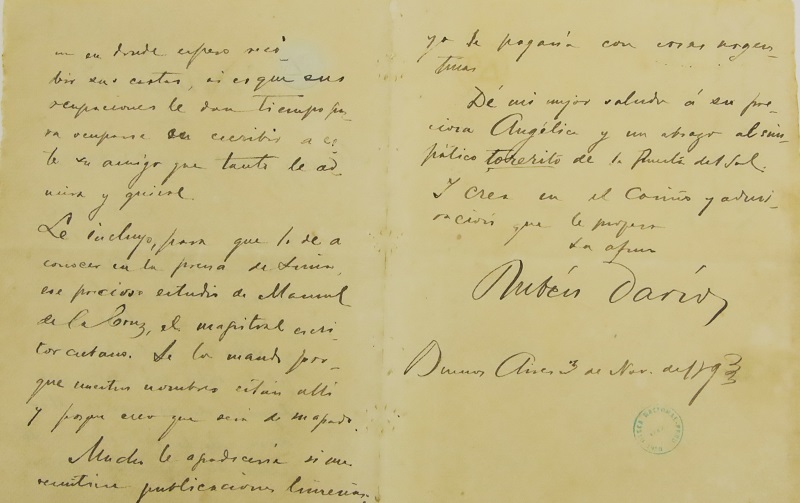 en donde espero reci-
bir sus cartas, si es que sus
ocupaciones le dan tiempo pa-
ra ocuparse en escribir a es-
te su amigo que tanto le ad-
mira y quiere.
Le incluyo, para que lo dé a
conocer en la prensa de Lima,
ese precioso estudio de Manuel
de la Cruz, el magistral escri-
tor cubano. Se lo mando por-
que nuestros nombres están allí
y porque creo que será de su agrado.
Mucho le agradecería si me
remitiera publicaciones limeñas.
yo le pagaría con cosas argen-
tinas
Dé mi mejor saludo á su pre-
ciosa Angélica y un abrazo al sim-
pático torerito de la Puerta del Sol.
Y crea en el cariño y admi-
ración que le profesa
su afmo
Rubén Darío
Buenos Aires 3 de Nov. de 1893